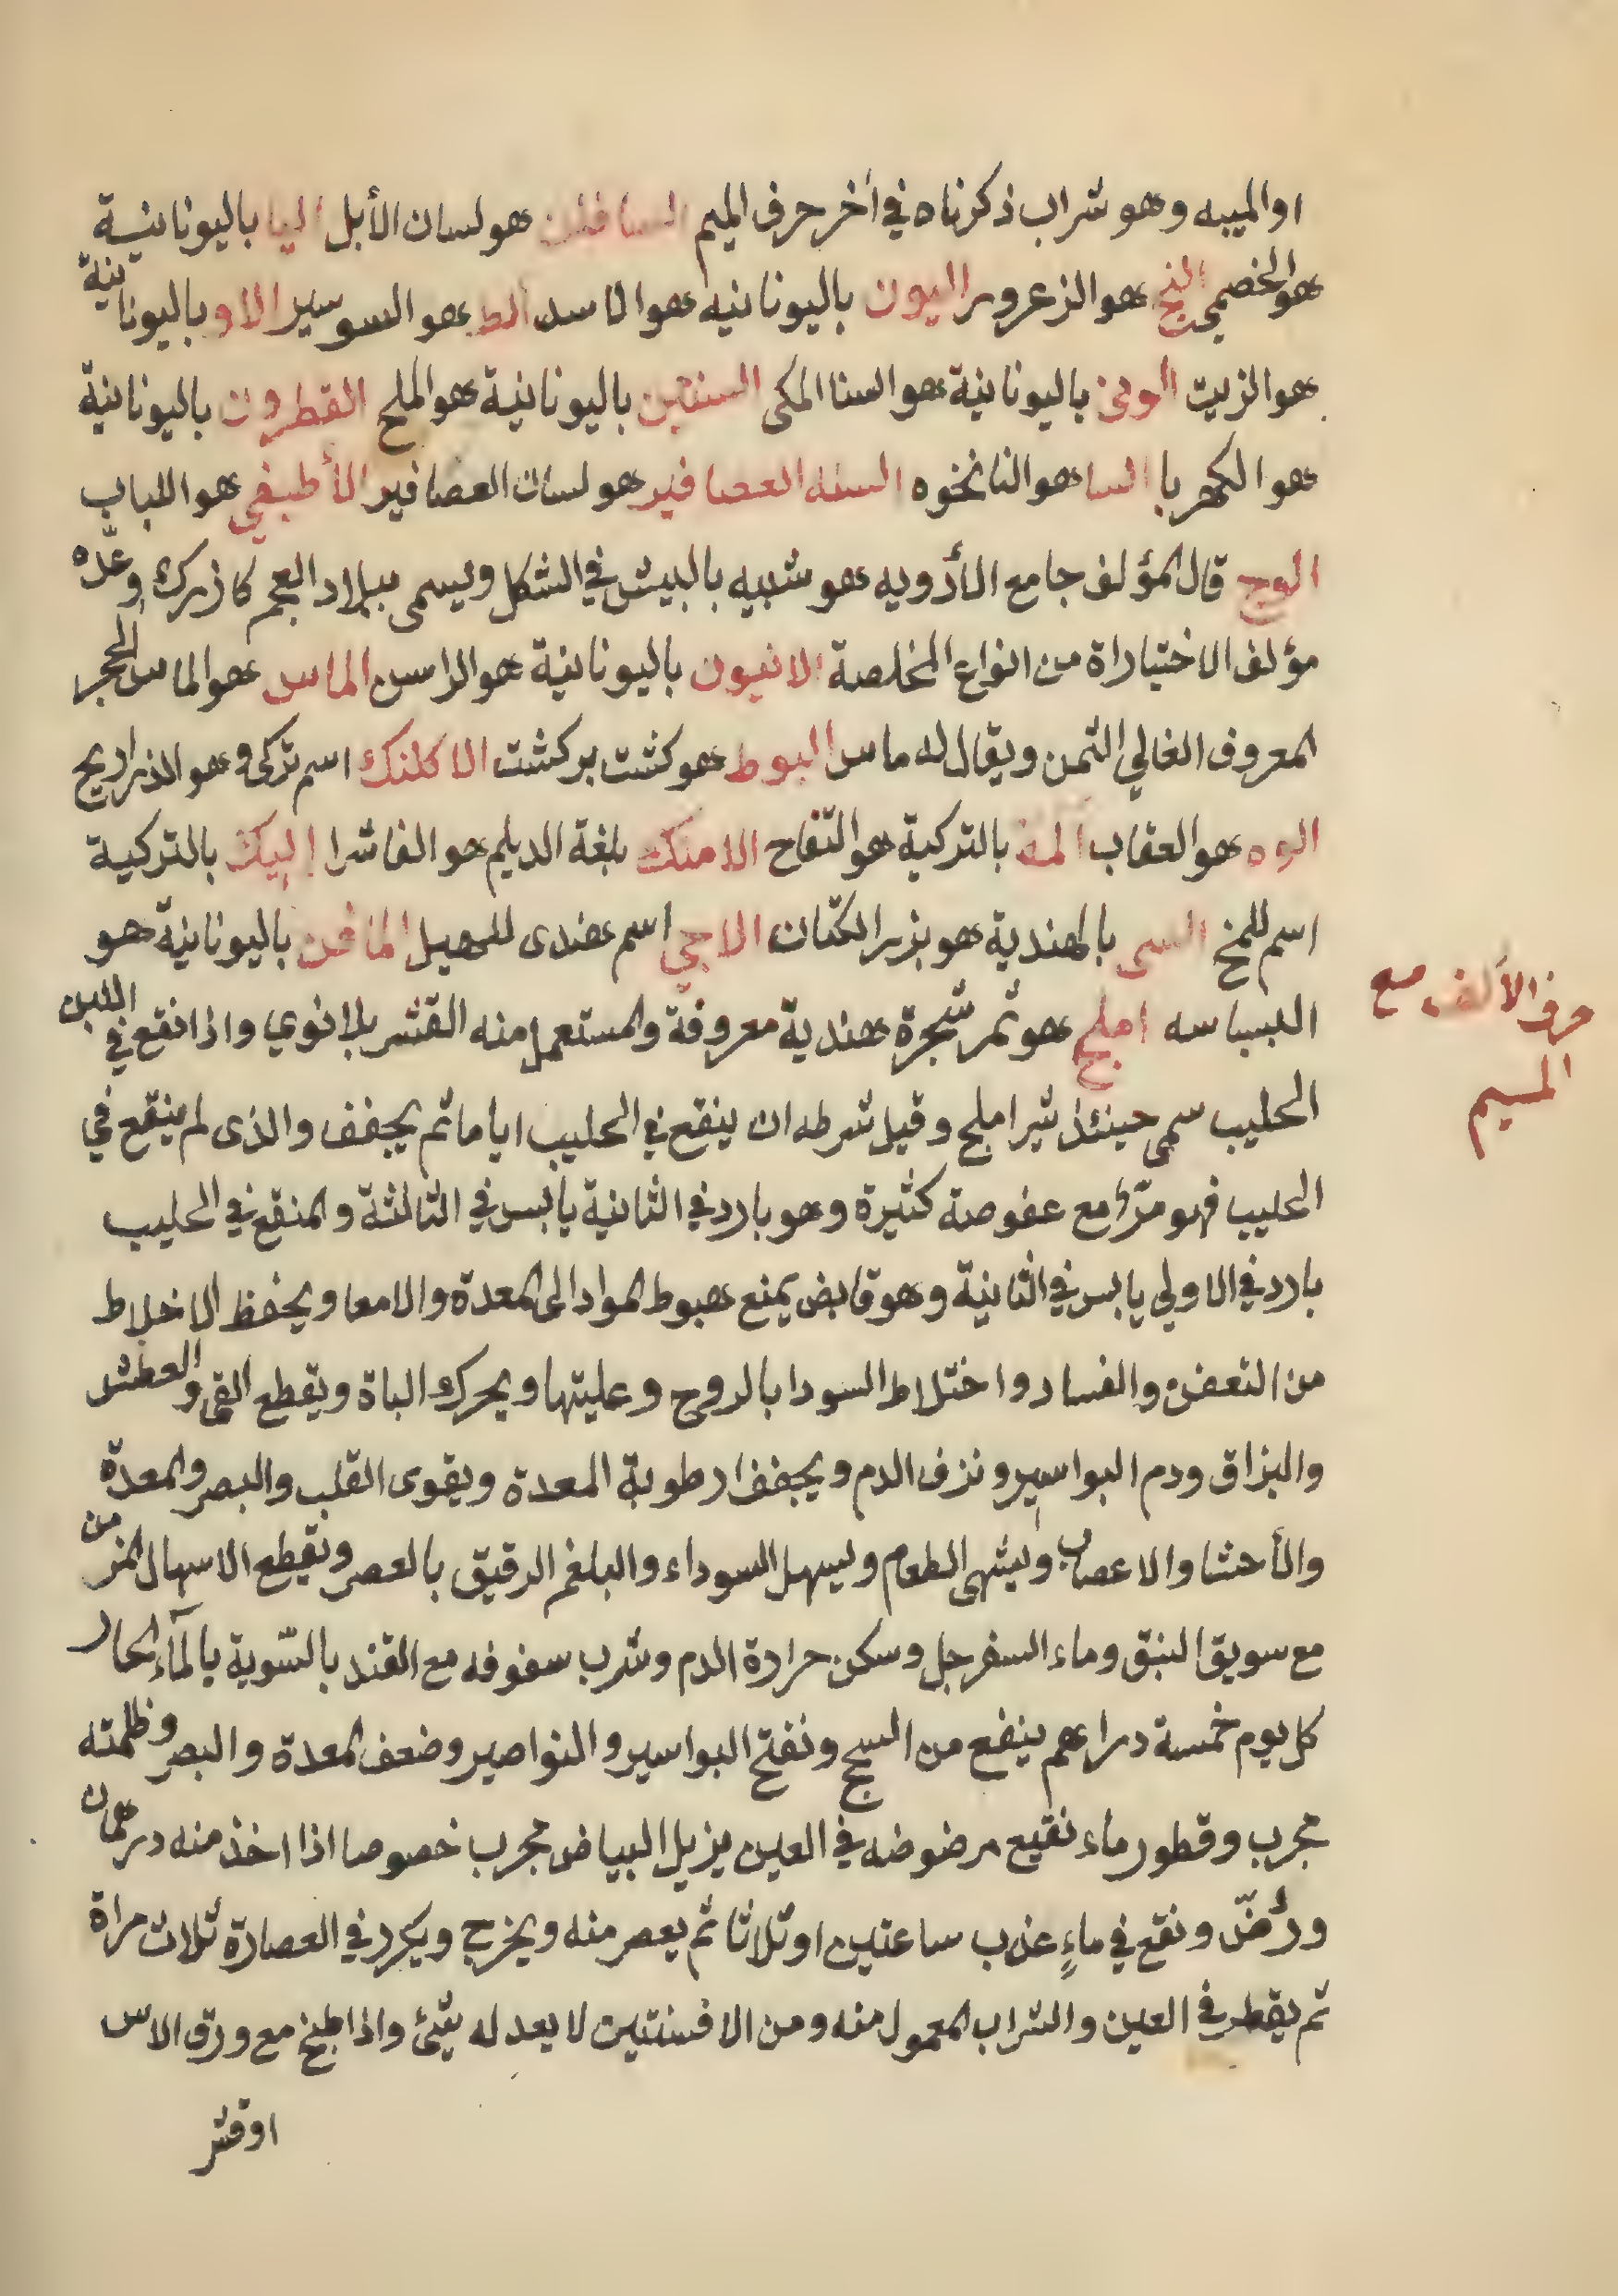 او الميبه وهو شراب ذكرناه في أخر حرف الميم هو لسان الأبل اليا باليونانيسة
هو الخصمى النج هو الزعرور اليون باليونانيه هو الاسد الط هو السوسير الاو باليونانية
هو الزيت الونى باليونانية هو السنا المكى السنتين باليونانية هو الملح القطرون باليونانية
هو الكهربا السا هو النانخوه السنه العصافير هو لسان العصافير الأطيفي هو اللباب
الوج قال المؤلف جامع الأدويه هو شبيه بالبيش في الشكل ويسمى ببلاد العجم كازرك وعدّه
مؤلف الاختياراة من انواع المخلصة الانيون باليونانية هو الراسن الماس هو الماس الحجر
المعروف الغالي الثمن ويقال له ماس البوط هو كشت بركشت الاكلنك اسم تركى وهو الذراريح
الوه هو العقاب المه بالتركية هو التفاح الامنك بلغة الديلم هو الفاشرا إليك بالتركية
اسم للمخ السى بالهندية هو بزر الكتان الاجي اسم هندى للهيل المافن باليونانية هو
البسباسه املج هو ثمر شجرة هندية معروفة والمستعمل منه القشر بلا نوي واذا نقع في اللبن
الحليب سمى حينئذ شير املج وقيل شرطه ان ينقع في الحليب اياما ثم يجفف والذى لم ينقع في
الحليب فهو مرّ مع عفوصة كثيرة وهو بارد في الثانية يابس في الثالثة والمنقع في الحليب
بارد في الاولي يابس في الثانية وهو قابض يمنع هبوط المواد الى المعدة والامعا ويحفظ الاخلاط
من التعفن والفساد واختلاط السودا بالروح وعليتها ويحرك الباة ويقطع القى والعطش
والبزاق ودم البواسير ونزف الدم ويجفف رطوبة المعدة ويقوى القلب والبصر والمعدة
والأحشا والاعصاب ويشهى الطعام ويسهل السوداء والبلغم الرقيق بالعصر ونقيطع الاسهال المزمن
مع سويق النبق وماء السفرجل وسكن حرارة الدم وشرب سفوفه مع القند بالسّوية بالمآء الحار
كل يوم خمسة دراهم ينفع من السحج ونفتح البواسير والنواصير وضعف المعدة والبصر وظلمته
مجرب وقطور ماء نقيع مرضوضه في العين يزيل البياض مجرب خصوصا اذا اخذ منه درهمان
ورُضّ ونقع في ماءٍ عذب ساعتين او ثلاثا ثم يعصر منه ويخرج ويكرر في العصارة ثلاث مراة
ثم يقطر في العين والشراب المعمول منه ومن الافسنتين لا يعدله شئ واذا طبخ مع ورق الاس
او قشر
حرف الألف مع
الميم